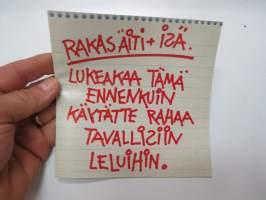 RAKAS ÄITI + ISÄ.
LUKEKAA TÄMÄ
ENNENKUIN
KÄYTÄTTE RAHAA
TAVALLISIIN
LELUIHIN.